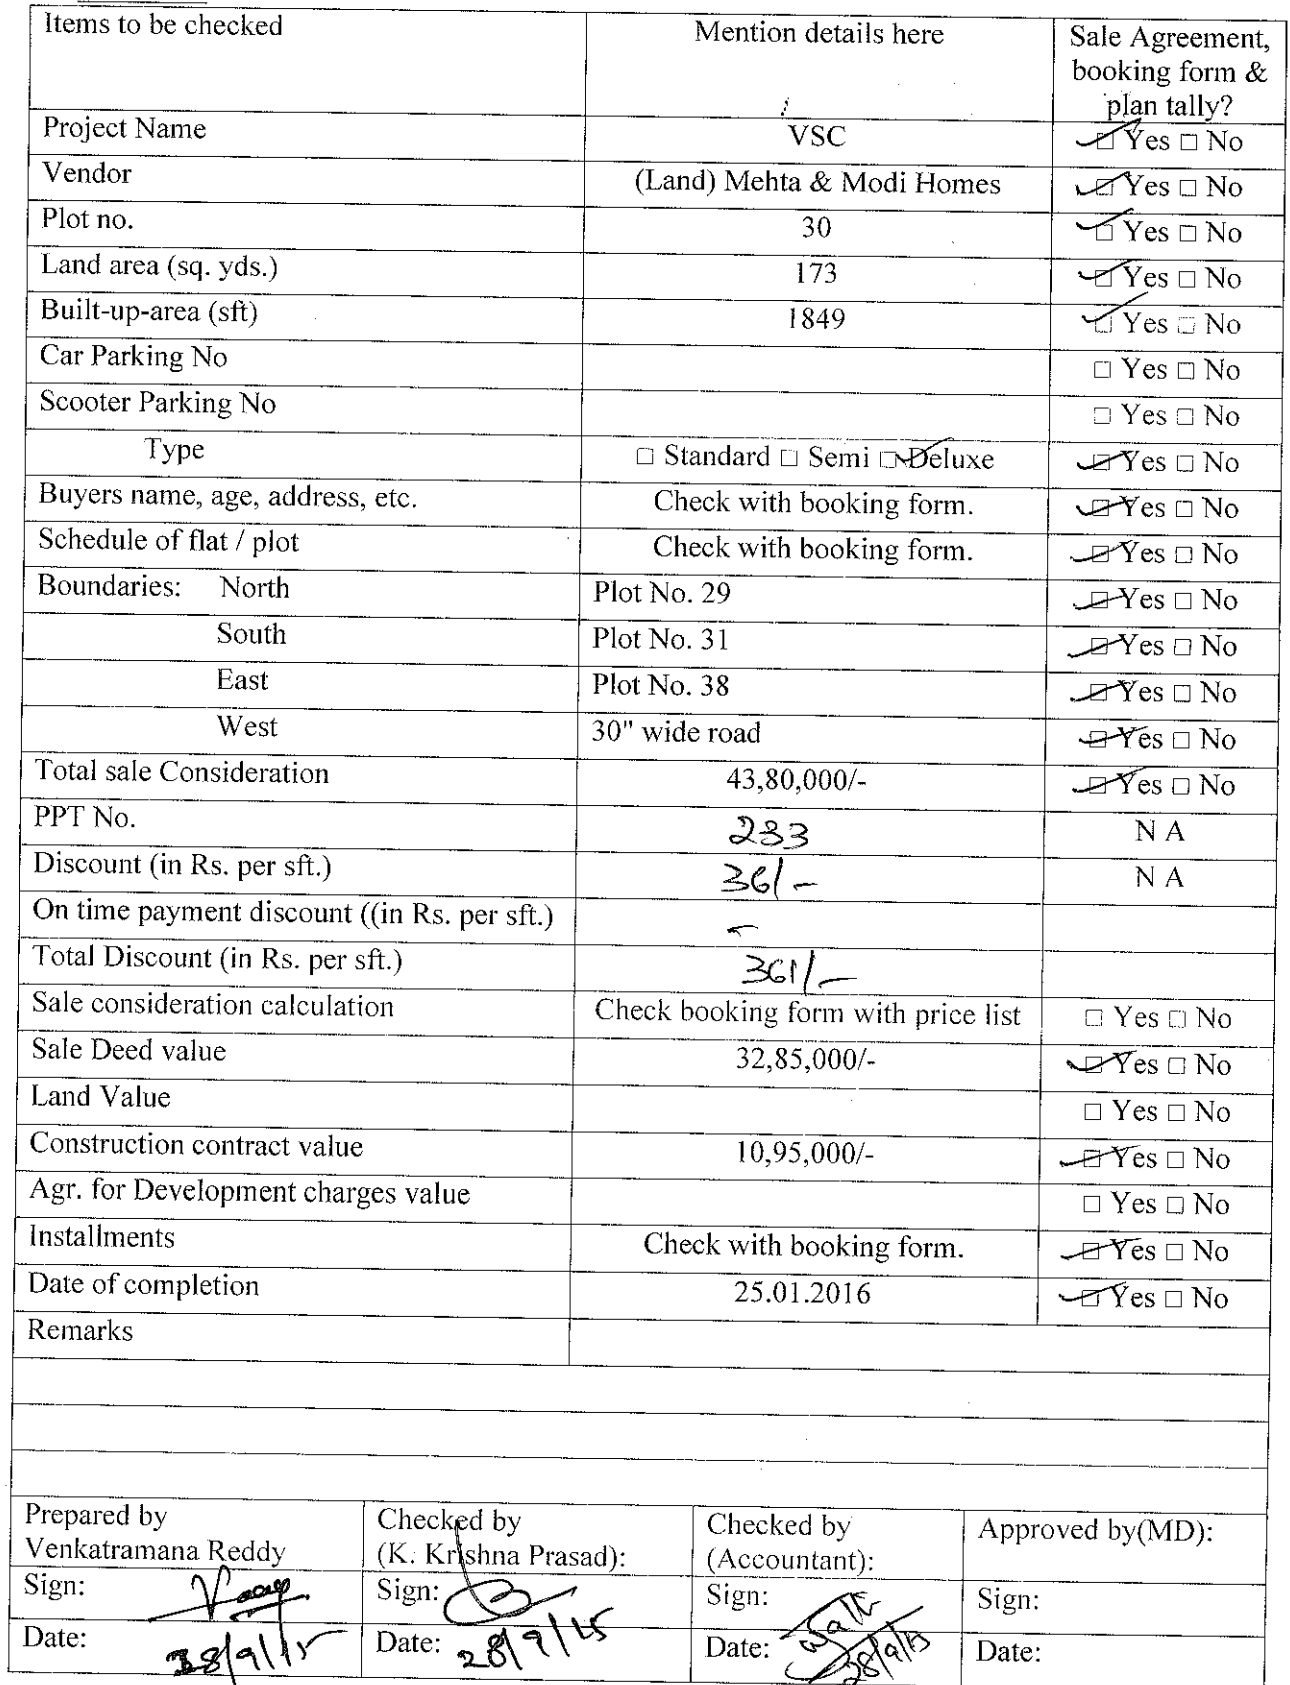 Items to be checked Mention details here Sale Agreement,
booking form &
plan tally?
Project Name VSC ☑ Yes □ No
Vendor (Land) Mehta & Modi Homes ☑ Yes □ No
Plot no. 30 ☑ Yes □ No
Land area (sq. yds.) 173 ☑ Yes □ No
Built-up-area (sft) 1849 ☑ Yes □ No
Car Parking No □ Yes □ No
Scooter Parking No □ Yes □ No
Type □ Standard □ Semi ☑ Deluxe ☑ Yes □ No
Buyers name, age, address, etc. Check with booking form. ☑ Yes □ No
Schedule of flat / plot Check with booking form. ☑ Yes □ No
Boundaries: North Plot No. 29 ☑ Yes □ No
South Plot No. 31 ☑ Yes □ No
East Plot No. 38 ☑ Yes □ No
West 30" wide road ☑ Yes □ No
Total sale Consideration 43,80,000/- ☑ Yes □ No
PPT No. 233 N A
Discount (in Rs. per sft.) 361/- N A
On time payment discount ((in Rs. per sft.) -
Total Discount (in Rs. per sft.) 361/-
Sale consideration calculation Check booking form with price list □ Yes □ No
Sale Deed value 32,85,000/- ☑ Yes □ No
Land Value □ Yes □ No
Construction contract value 10,95,000/- ☑ Yes □ No
Agr. for Development charges value □ Yes □ No
Installments Check with booking form. ☑ Yes □ No
Date of completion 25.01.2016 ☑ Yes □ No
Remarks
Prepared by Checked by Checked by Approved by(MD):
Venkatramana Reddy (K. Krishna Prasad): (Accountant):
Sign: Sign: Sign: Sign:
Date: 28/9/15 Date: 28/9/15 Date: 28/9/15 Date: